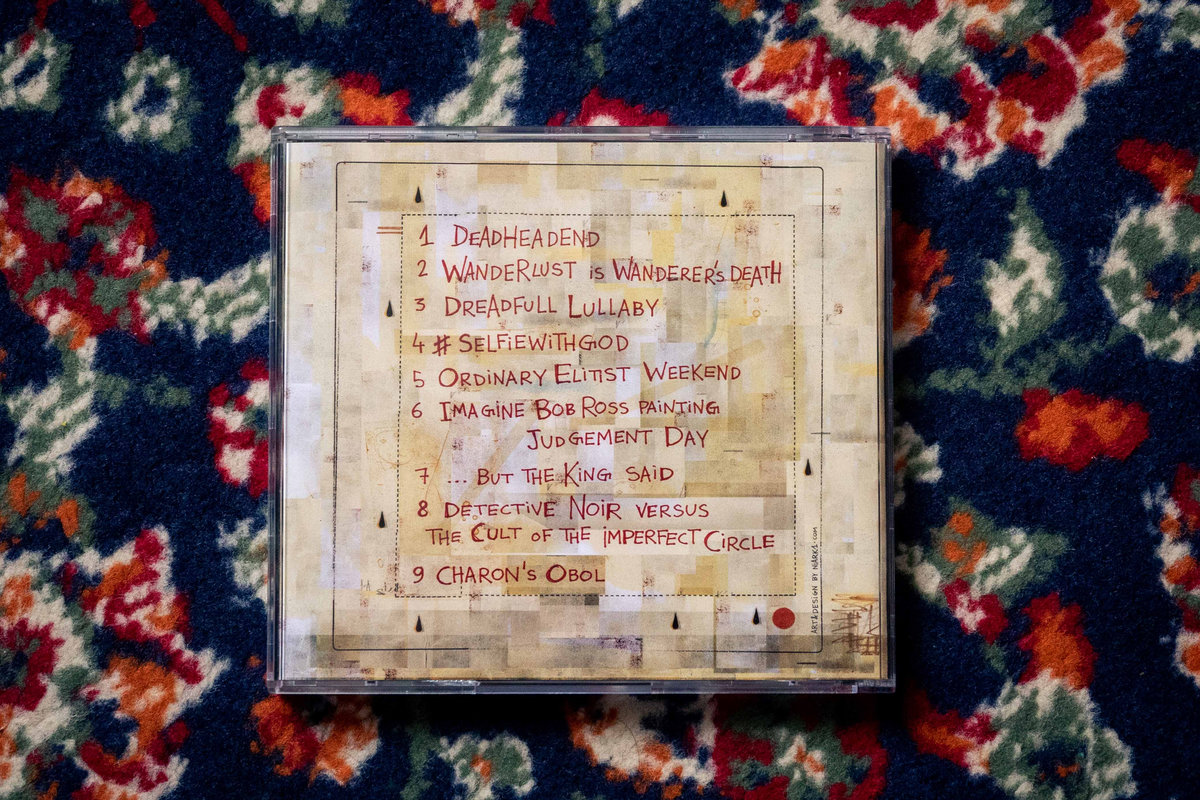 1 DEADHEADEND
2 WANDERLUST is WANDERER'S DEATH
3 DREADFULL LULLABY
4 # SELFiEWiTHGOD
5 ORDINARY ELITIST WEEKEND
6 IMAGINE BOB ROSS PAINTING
JUDGEMENT DAY
7 ... BUT THE KING SAID
8 DETECTIVE NOIR VERSUS
THE CULT OF THE IMPERFECT CIRCLE
9 CHARON'S OBOL
ART&DESIGN BY NIARK1.COM